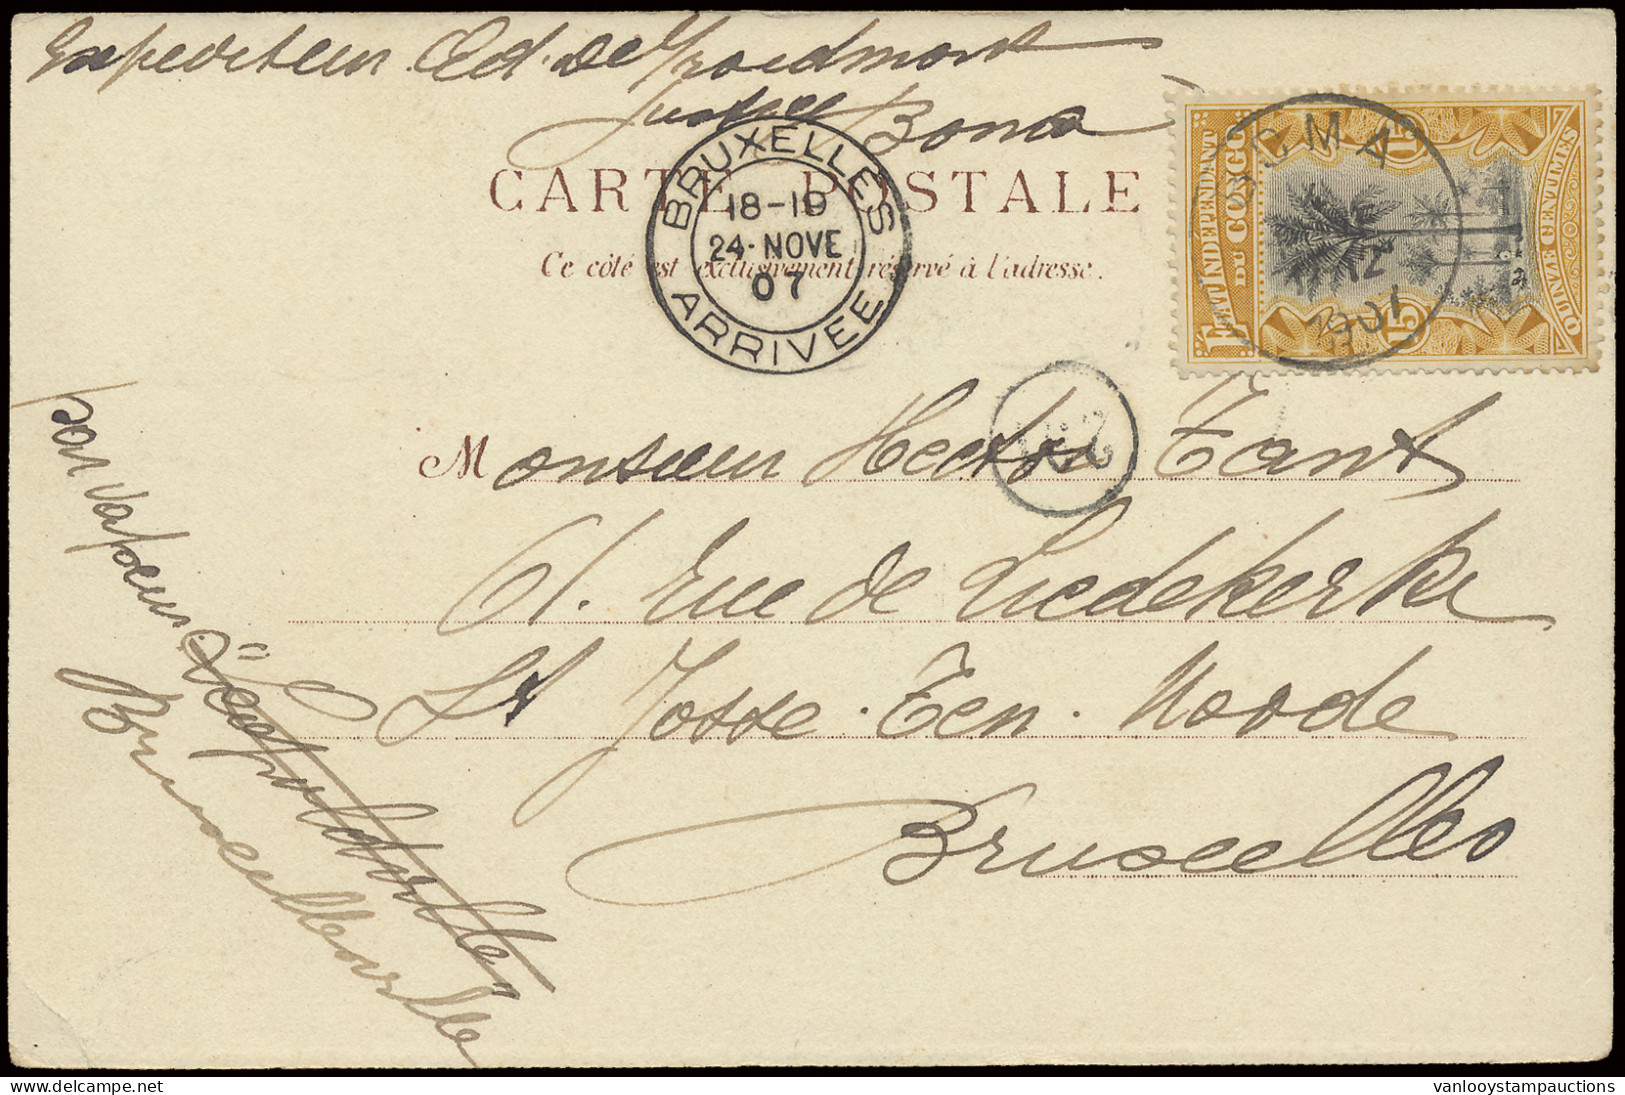 Expediteur Ed. de Froidmont
Justice Boma
CARTE POSTALE
Ce côté est exclusivement réservé à l'adresse.
BRUXELLES
18-19
24 NOVE
07
ARRIVEE
ÉTAT INDÉPENDANT
DU CONGO
15
15
QUINZE CENTIMES
BOMA
Monsieur Hector Tant
61. Rue de Liedekerke
St Josse-Ten-Noode
Bruxelles
par vapeur
Bruxellesville
vanlooystampauctions